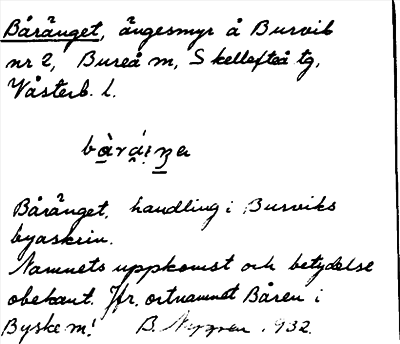 Båränget, ängesmyr å Burvik
nr 2, Bureå m, Skellefteå tg,
Västerb. l.
Båränget, handling i Burviks
byaskrin.
Namnets uppkomst och betydelse
obekant. Jfr. ortnamnet Båren i
Byske m! B. Nygren 1932.